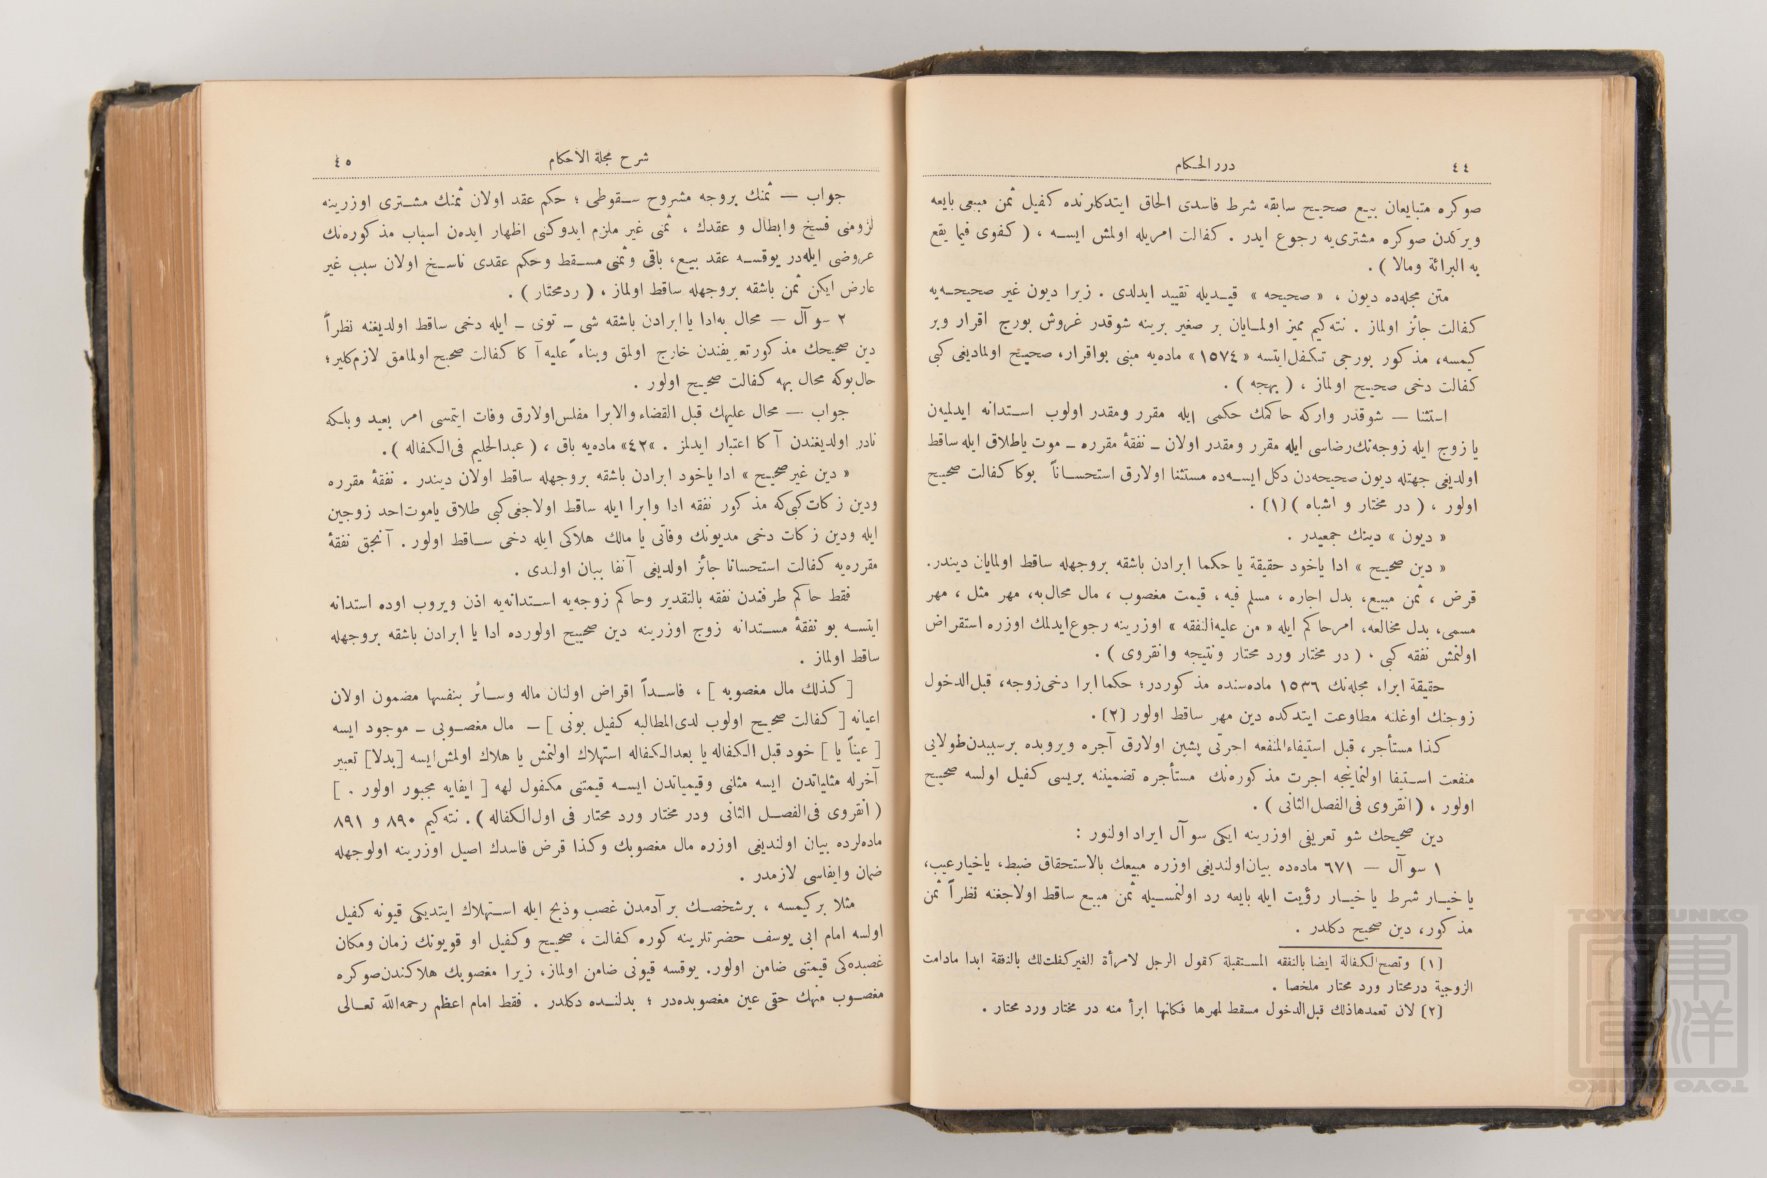 ٤٤
درر الحكام
صوكره متبايعان بيع صحيح سابقه شرط فاسدى الحاق ايتدكلرنده كفيل ثمن مبيعى بايعه
ويركدن صوكره مشترى‌يه رجوع ايدر . كفالت امريله اولمش ايسه ، ( كفوى فيما يقع
به البرائة ومالا ) .
متن مجله‌ده ديون ، « صحيحه » قيديله تقييد ايدلدى . زيرا ديون غير صحيحه‌يه
كفالت جائز اولماز . نته‌كيم مميز اولمايان بر صغير برينه شوقدر غروش بورج اقرار وبر
كيمسه، مذكور بورجى تكفل ايتسه «١٥٧٤» ماده‌يه مبنى بواقرار، صحيح اولماديغى كبى
كفالت دخى صحيح اولماز ، ( بهجه ) .
استثنا — شوقدر واركه حاكمك حكمى ايله مقرر ومقدر اولوب استدانه ايدلميه‌ن
يا زوج ايله زوجه‌نك رضاسى ايله مقرر ومقدر اولان ــ نفقهٔ مقرره ــ موت ياطلاق ايله ساقط
اولديغى جهتله ديون صحيحه‌دن دكل ايسه‌ده مستثنا اولارق استحساناً بوكا كفالت صحيح
اولور ، ( در مختار و اشباه ) (١) .
« ديون » دينك جمعيدر .
« دين صحيح » ادا ياخود حقيقة يا حكما ابرادن باشقه بروجهله ساقط اولمايان ديندر.
قرض ، ثمن مبيع، بدل اجاره ، مسلم فيه ، قيمت مغصوب ، مال محال‌به، مهر مثل ، مهر
مسمى، بدل مخالعه، امرحاكم ايله « من عليه‌النفقه » اوزرينه رجوع‌ايدلمك اوزره استقراض
اولنمش نفقه كبى . ( در مختار ورد محتار ونتيجه وانقروى ) .
حقيقة ابرا، مجله‌نك ١٥٣٦ ماده‌سنده مذكوردر؛ حكما ابرا دخى زوجه، قبل‌الدخول
زوجنك اوغلنه مطاوعت ايتدكده دين مهر ساقط اولور (٢) .
كذا مستأجر، قبل استيفاءالمنفعه اجرتى پشين اولارق آجره ويروبده برسببدن‌طولايى
منفعت استيفا اولنماينجه اجرت مذكوره‌نك مستأجره تضميننه بريسى كفيل اولسه صحيح
اولور ، ( انقروى فى‌الفصل‌الثانى ) .
دين صحيحك شو تعريفى اوزرينه ايكى سو آل ايراد اولنور :
١ سو آل — ٦٧١ ماده‌ده بيان‌اولنديغى اوزره مبيعك بالاستحقاق ضبط، ياخيارعيب،
يا خيار شرط يا خيار رؤيت ايله بايعه رد اولنمسيله ثمن مبيع ساقط اولاجغنه نظراً ثمن
مذكور، دين صحيح دكلدر .
(١) وتصح الكفالة ايضا بالنفقه المستقبلة كقول الرجل لامرأة الغير كفلت‌لك بالنفقة ابدا مادامت
الزوجية درمختار ورد محتار ملخصا .
(٢) لان تعمدهاذلك قبل‌الدخول مسقط لمهرها فكانها ابرأ منه در مختار ورد محتار .
شرح مجلة الاحكام
٤٥
جواب — ثمنك بروجه مشروح سقوطى ؛ حكم عقد اولان ثمنك مشترى اوزرينه
لزومنى فسخ وابطال و عقدك ، ثمنى غير ملزم ايدوكنى اظهار ايده‌ن اسباب مذكوره‌نك
عروضى ايله‌در يوقسه عقد بيع، باقى وثمنى مسقط وحكم عقدى ناسخ اولان سبب غير
عارض ايكن ثمن باشقه بروجهله ساقط اولماز ، ( ردمحتار ) .
٢ سو آل — محال به‌ادا يا ابرادن باشقه شى ــ توى ــ ايله دخى ساقط اولديغنه نظراً
دين صحيحك مذكورتعريفندن خارج اولمق وبناءً عليه آ كا كفالت صحيح اولمامق لازم‌كلير؛
حال‌بوكه محال بهه كفالت صحيح اولور .
جواب — محال عليهك قبل القضاء والابرا مفلس‌اولارق وفات ايتمسى امر بعيد وبلكه
نادر اولديغندن آ كا اعتبار ايدلمز . «٤٢» ماده‌يه باق ، ( عبدالحليم فى‌الكفاله ) .
« دين غير صحيح » ادا ياخود ابرادن باشقه بروجهله ساقط اولان ديندر . نفقهٔ مقرره
ودين زكات‌كبى‌كه مذكور نفقه ادا وابرا ايله ساقط اولاجغى‌كبى طلاق ياموت‌احد زوجين
ايله ودين زكات دخى مديونك وفاتى يا مالك هلاكى ايله دخى ساقط اولور . آنجق نفقهٔ
مقرره‌يه كفالت استحسانا جائز اولديغى آنفا بيان اولدى .
فقط حاكم طرفندن نفقه بالتقدير وحاكم زوجه‌يه استدانه‌يه اذن ويروب اوده استدانه
ايتسه بو نفقهٔ مستدانه زوج اوزرينه دين صحيح اولورده ادا يا ابرادن باشقه بروجهله
ساقط اولماز .
[ كذلك مال مغصوبه ] ، فاسداً اقراض اولنان ماله وسائر بنفسها مضمون اولان
اعيانه [ كفالت صحيح اولوب لدى‌المطالبه كفيل بونى ] ــ مال مغصوبى ــ موجود ايسه
[ عيناً يا ] خود قبل الكفاله يا بعدالكفاله استهلاك اولنمش يا هلاك اولمش‌ايسه [بدلا] تعبير
آخرله مثلياتدن ايسه مثلنى وقيمياتدن ايسه قيمتنى مكفول لهه [ ايفايه مجبور اولور . ]
( انقروى فى‌الفصل الثانى ودر مختار ورد محتار فى اول‌الكفاله ) . نته‌كيم ٨٩٠ و ٨٩١
ماده‌لرده بيان اولنديغى اوزره مال مغصوبك وكذا قرض فاسدك اصيل اوزرينه اولوجهله
ضمان وايفاسى لازمدر .
مثلا بركيمسه ، برشخصك بر آدمدن غصب وذبح ايله استهلاك ايتديكى قيونه كفيل
اولسه امام ابى يوسف حضرتلرينه كوره كفالت ، صحيح وكفيل او قويونك زمان ومكان
غصبده‌كى قيمتنى ضامن اولور. يوقسه قيونى ضامن اولماز، زيرا مغصوبك هلاكندن‌صوكره
مغصوب منهك حقى عين مغصوبده‌در ؛ بدلنده دكلدر . فقط امام اعظم رحمه‌الله تعالى
TOYO BUNKO
東洋文庫
TOYO BUNKO